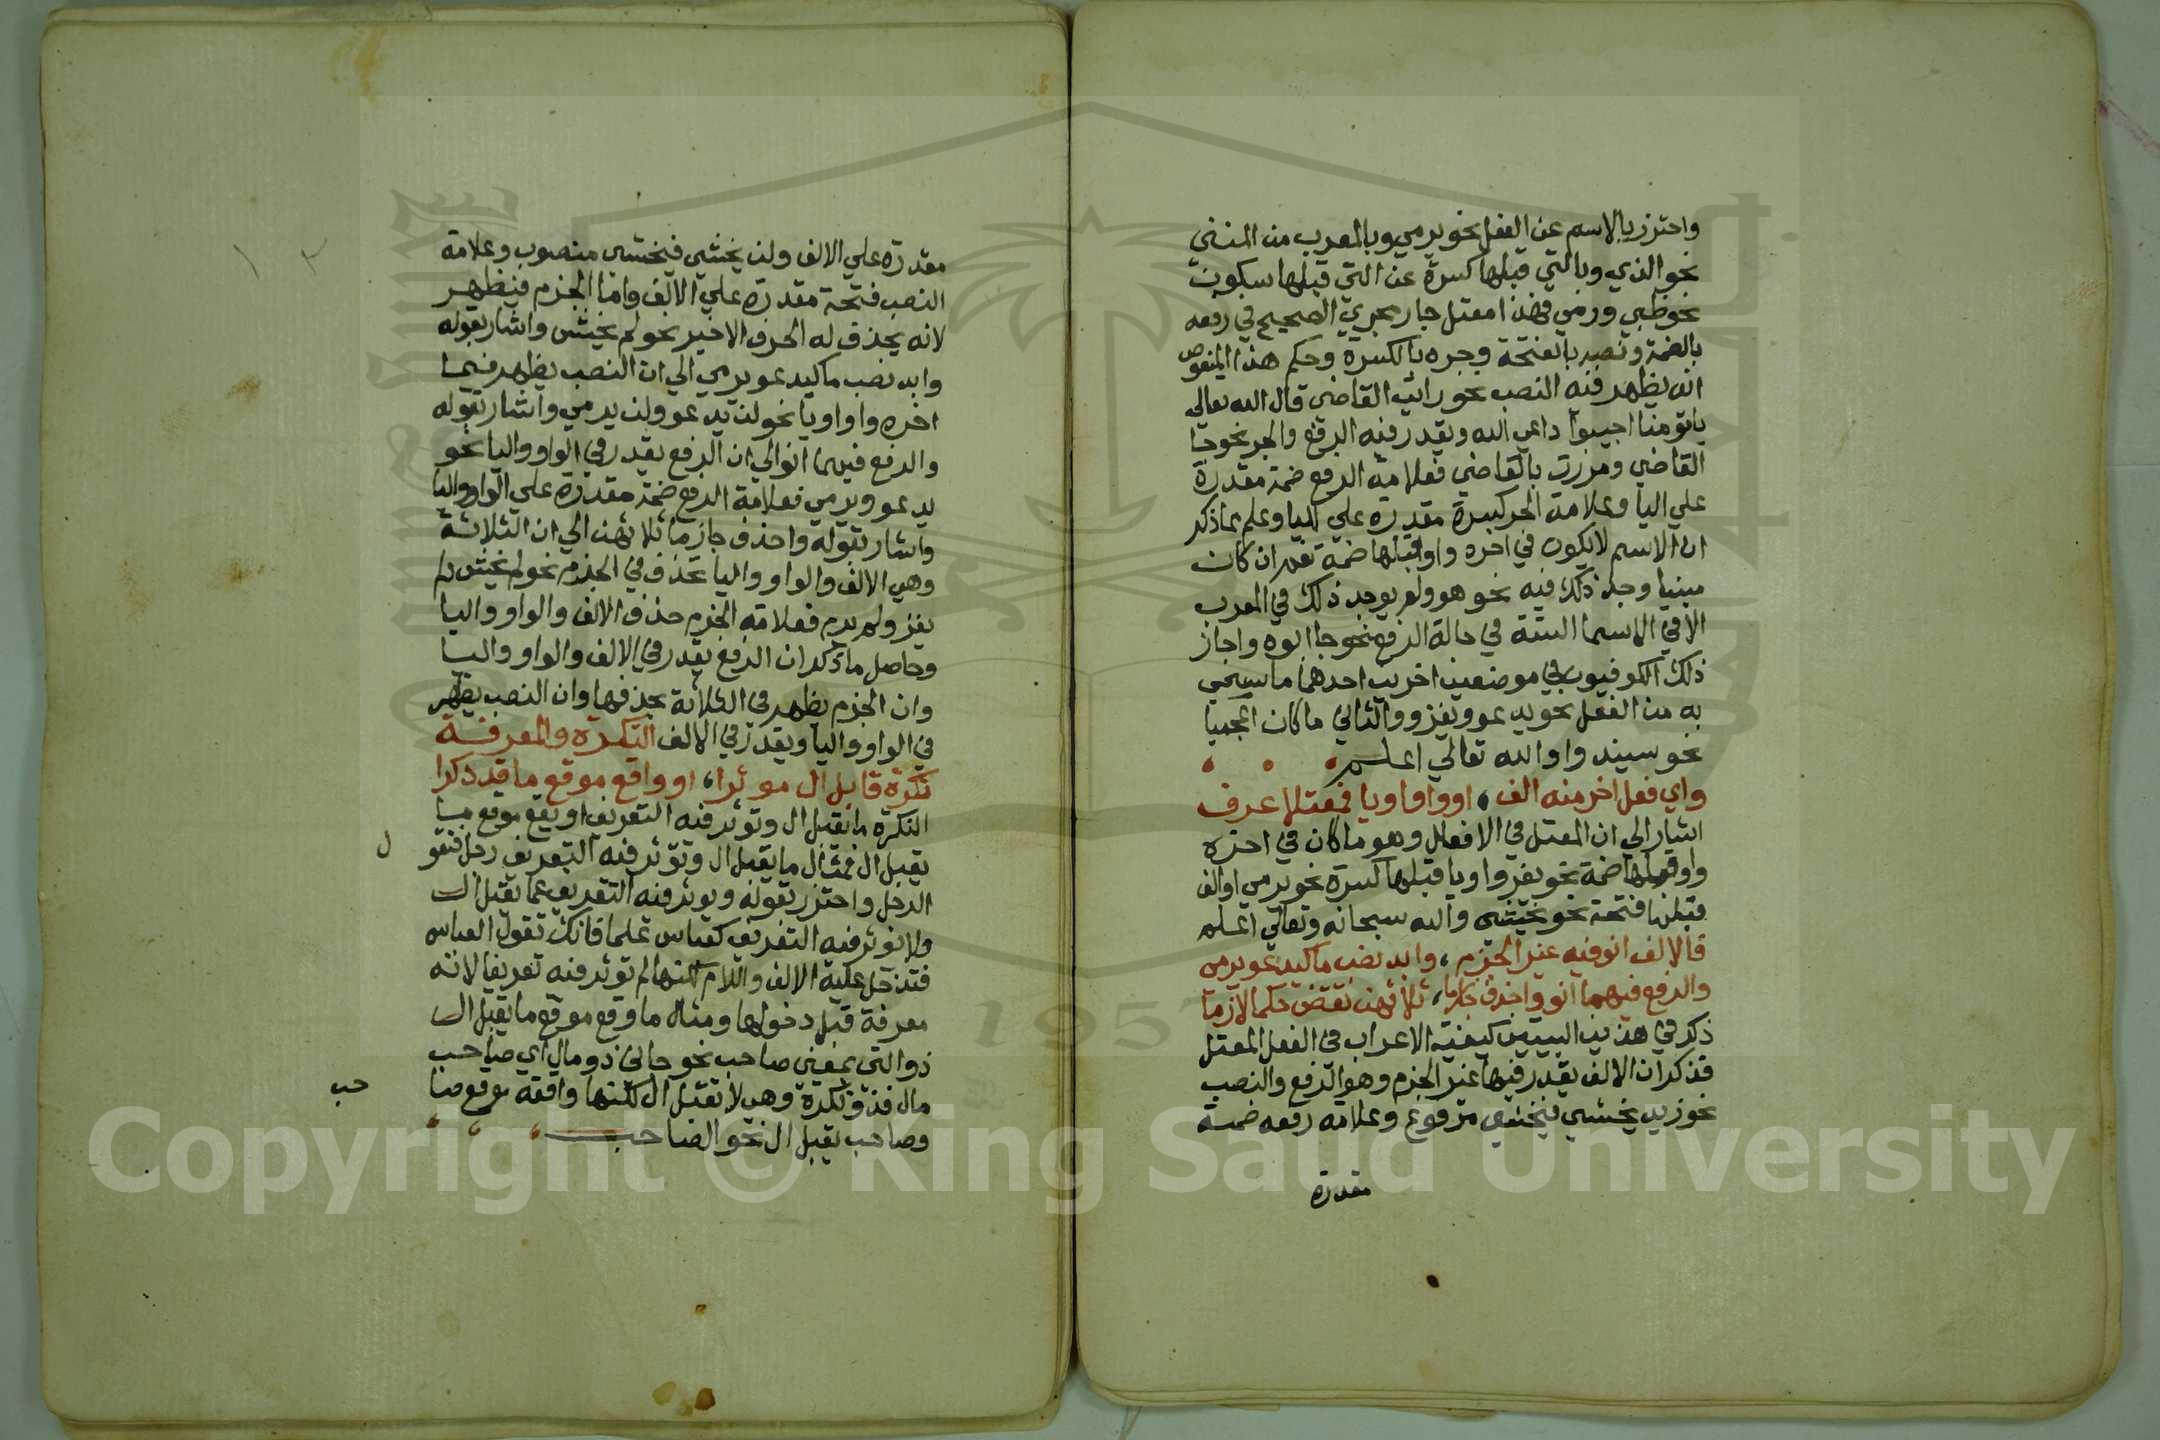 واحترز بالاسم عن الفعل نحو يرمي وبالمعرب من المبني
نحو الذي وبالتي قبلها كسرة عن التي قبلها سكون
نحو ظبي ورمي فهذا معتل جار مجري الصحيح في رفعه
بالضمة ونصبه بالفتحة وجره بالكسرة وحكم هذا المنقوص
انه يظهر فيه النصب نحو رايت القاضي قال الله تعالي
ياقومنا اجيبوا داعي الله ويقدر فيه الرفع والجر نحو جا
القاضي ومررت بالقاضي فعلامة الرفع ضمة مقدرة
علي اليا وعلامة الجر كسرة مقدره علي اليا وعلم بما ذكر
ان الاسم لا يكون في اخره واو قبلها ضمة نعم ان كان
مبنيا وجد ذلك فيه نحو هو ولم يوجد ذلك في المعرب
الا في الاسما الستة في حالة الرفع نحو جا ابوه واجاز
ذلك الكوفيون في موضعين اخرين احدهما ما سمي
به من الفعل نحو يدعو ويغزو والثاني ما كان اعجميا
نحو سمندو او الله تعالي اعلم
واي فعل اخر منه الف ، او واو او يا فمعتلا عرف
اشار الي ان المعتل في الافعال وهو ما كان في اخره
واو قبلها ضمة نحو يغزوا ويا قبلها كسرة نحو يرمي او الف
قبلها فتحة نحو يخشي والله سبحانه وتعالي اعلم
فالالف انو فيه غير الجزم ، وابد نصب ما كيدعو يرمي
والرفع فيهما انو واحذف جازما ، ثلاثهن تقض حكما لازما
ذكر في هذين البيتين كيفية الاعراب في الفعل المعتل
فذكر ان الالف يقدر فيها غير الجزم وهو الرفع والنصب
نحو زيد يخشي فيخشي مرفوع وعلامة رفعه ضمة
مقدرة
مقدرة علي الالف ولن يخشي فيخشي منصوب وعلامة
النصب فتحة مقدرة علي الالف واما الجزم فيظهر
لانه يحذف له الحرف الاخير نحو لم يخش واشار بقوله
وابد نصب ما كيدعو يرمي الي ان النصب يظهر فيما
اخره واو او يا نحو لن يدعو ولن يرمي واشار بقوله
والرفع فيهما انو الي ان الرفع يقدر في الواو واليا نحو
يدعو ويرمي فعلامة الرفع ضمة مقدرة علي الواو واليا
واشار بقوله واحذف جازما ثلاثهن الي ان الثلاثة
وهي الالف والواو واليا تحذف في الجزم نحو لم يخش ولم
يغز ولم يرم فعلامة الجزم حذف الالف والواو واليا
وحاصل ما ذكر ان الرفع يقدر في الالف والواو واليا
وان الجزم يظهر في الثلاثة بحذفها وان النصب يظهر
في الواو واليا ويقدر في الالف النكرة والمعرفة
نكرة قابل ال موثرا ، او واقع موقع ما قد ذكرا
النكرة ما يقبل ال وتوثر فيه التعريف او يقع موقع ما
يقبل ال فمثال ما يقبل ال وتوثر فيه التعريف رجل فتقو
ل
الرجل واحترز بقوله ويوثر فيه التعريف عما يقبل ال
ولا توثر فيه التعريف كعباس علما فانك تقول العباس
فتدخل عليه الالف واللام لكنها لم توثر فيه تعريفا لانه
معرفة قبل دخولها ومثال ما وقع موقع ما يقبل ال
ذو التي بمعني صاحب نحو جاني ذو مال اي صاحب
مال فذو نكرة وهي لا تقبل ال لكنها واقعة موقع صا
حب
وصاحب يقبل ال نحو الصاحب
1957
Copyright © King Saud University